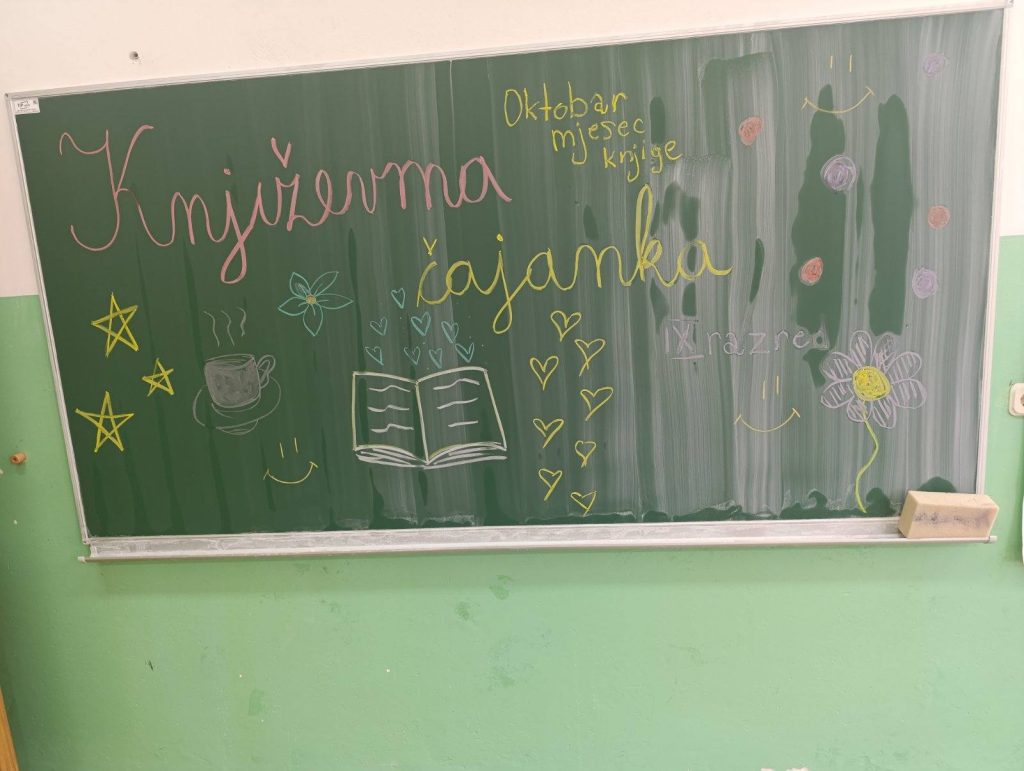 Oktobar
mjesec
knjige
Književna
čajanka
IX razred